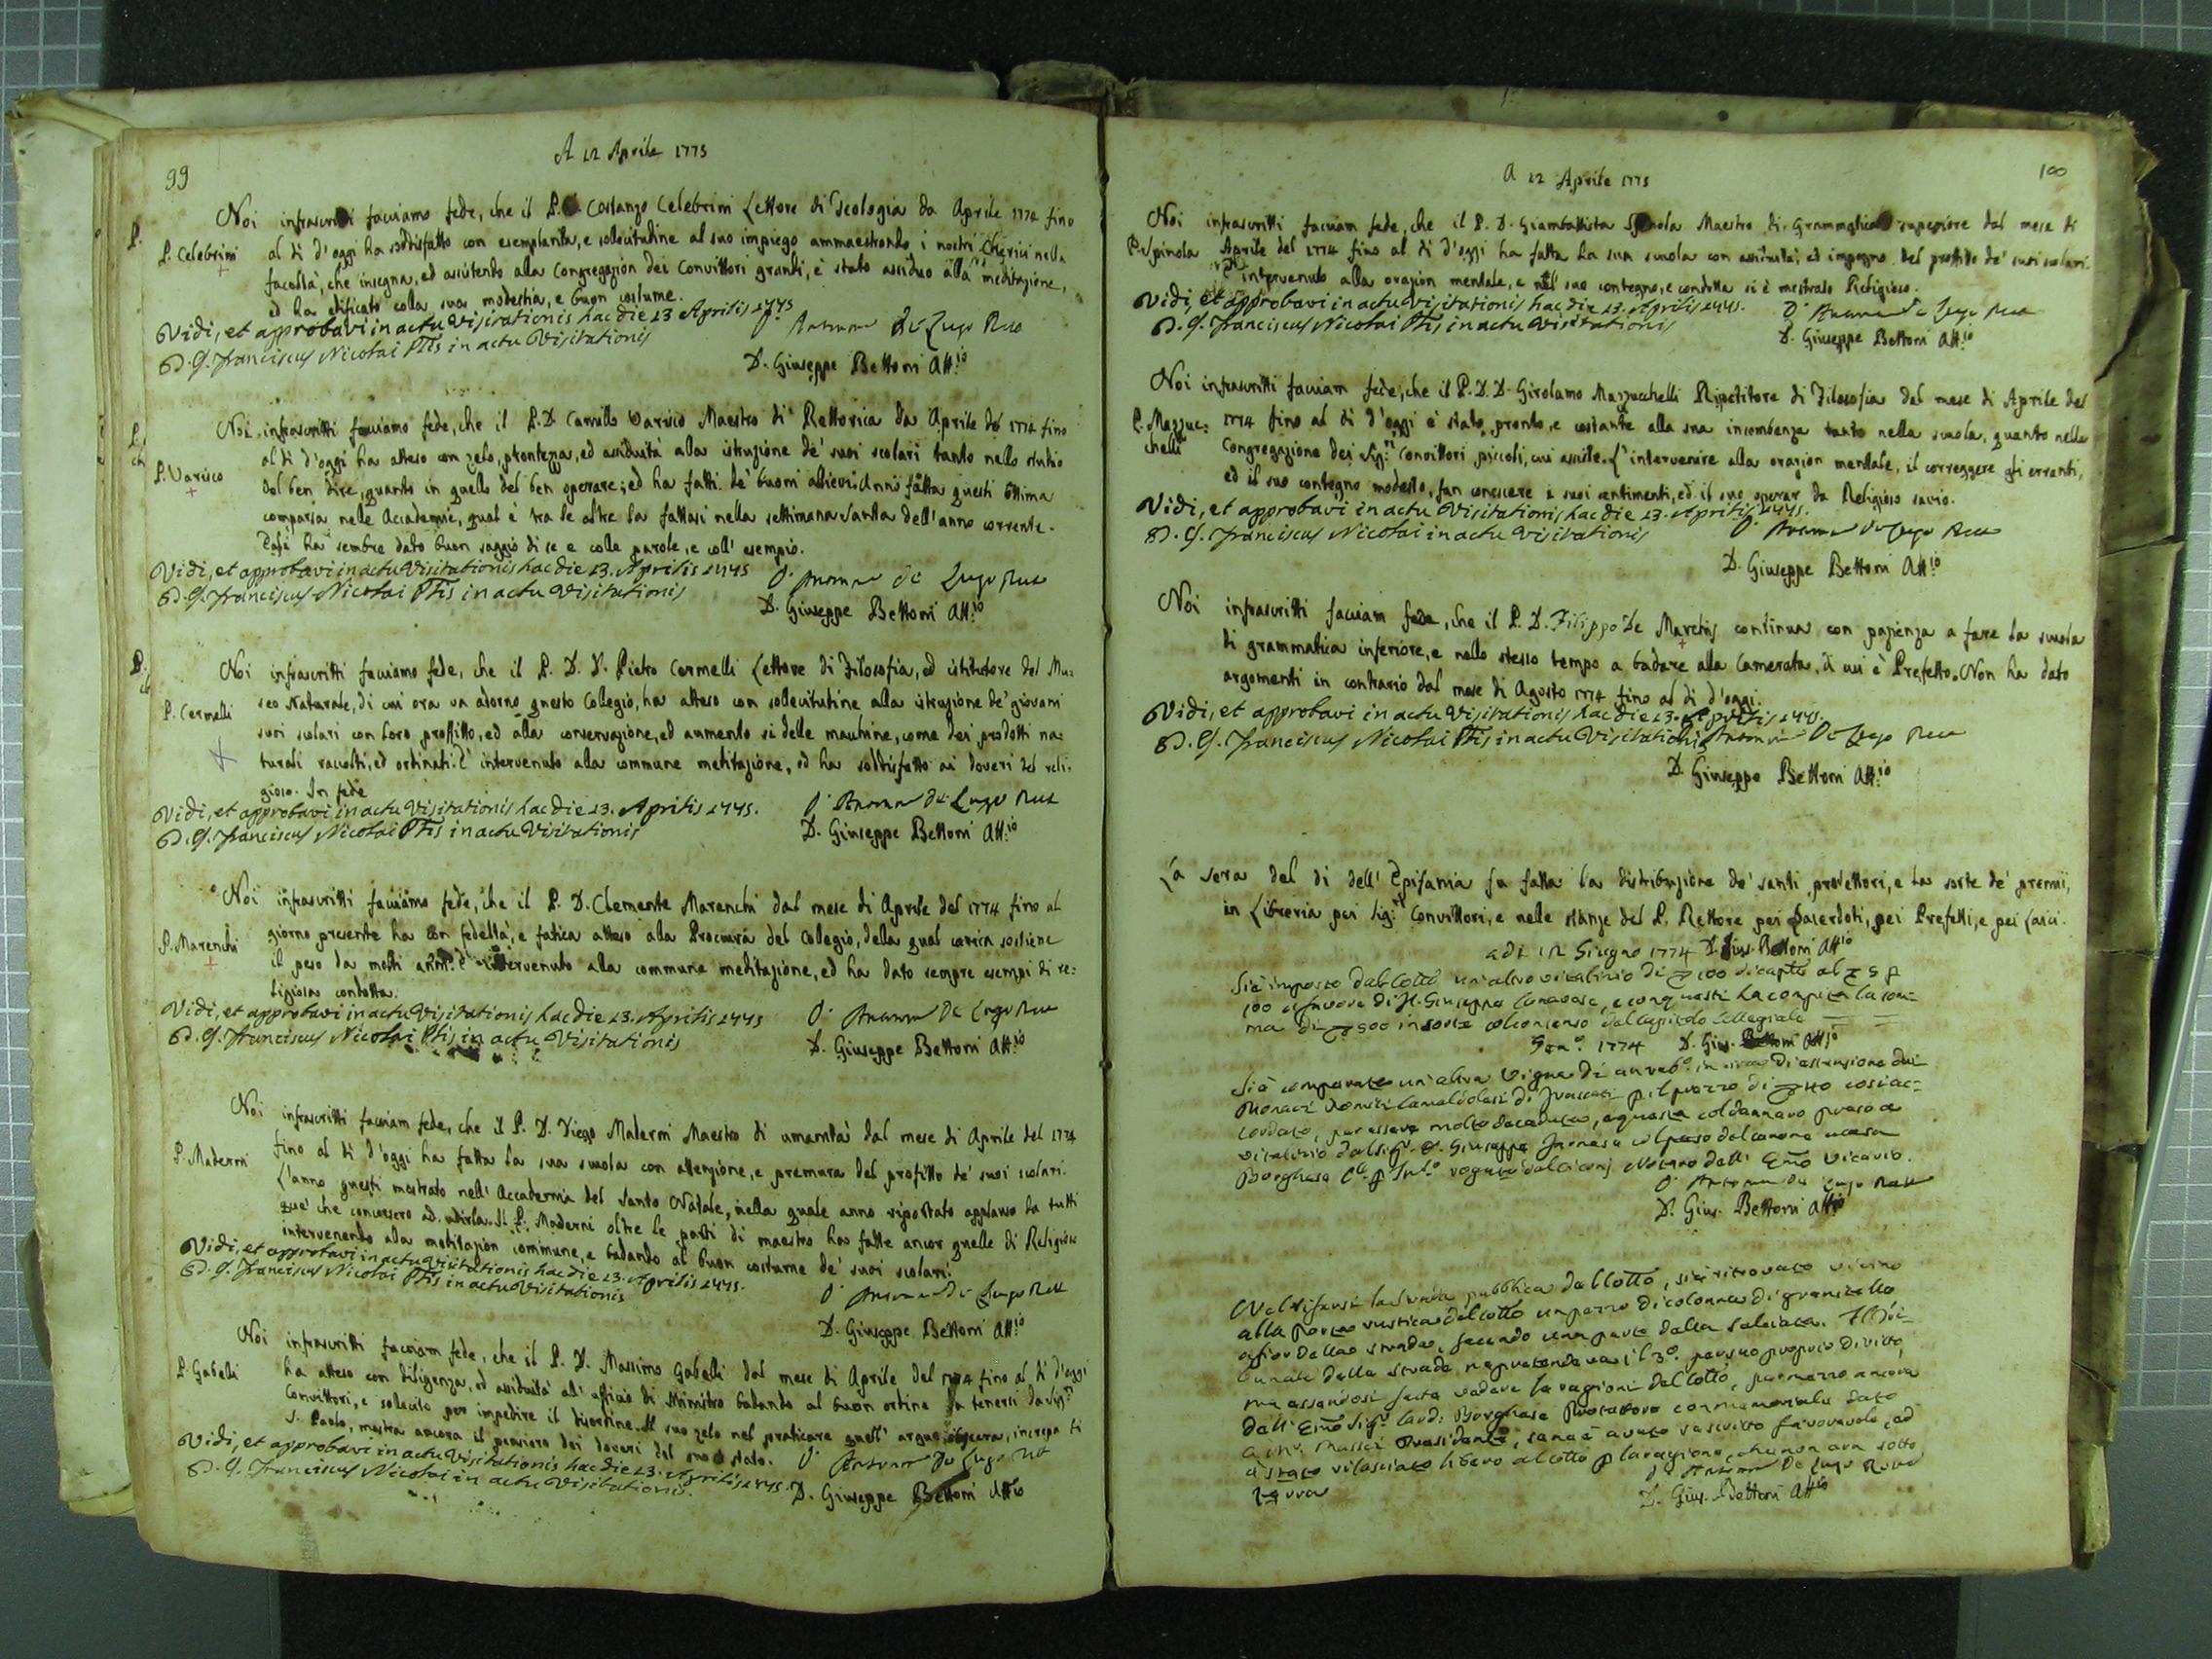 99
A 12 Aprile 1775
Noi infrascritti facciamo fede, che il P. D. Costanzo Celebrini Lettore di Teologia da Aprile 1774 fino
P. Celebrini al dì d'oggi ha soddisfatto con esemplarità, e sollecitudine al suo impiego ammaestrando i nostri Chierici nella
facoltà, che insegna, ed assistendo alla Congregazion dei Convittori grandi, è stato assiduo alla meditazione,
ed ha edificato colla sua modestia, e buon costume.
Vidi, et approbavi in actu Visitationis hac die 13 Aprilis 1775
D. G. Franciscus Nicolai in actu Visitationis
D. Antonio De Lugo
D. Giuseppe Bettoni Att.io
Noi infrascritti facciamo fede, che il P. D. Camillo Varisco Maestro di Rettorica da Aprile del 1774 fino
al dì d'oggi ha atteso con zelo, prontezza, ed assiduità alla istruzione de' suoi scolari tanto nello studio
P. Varisco del ben dire, quanto in quello del ben operare; ed ha fatti de' buoni allievi. Anno fatta questi ottima
comparsa nelle Accademie, qual è tra le altre la fattasi nella settimana Santa dell'anno corrente.
ha sempre dato buon saggio di se e colle parole, e coll' esempio.
Vidi, et approbavi in actu Visitationis hac die 13. Aprilis 1775
D. G. Franciscus Nicolai in actu Visitationis
D. Antonio De Lugo
D. Giuseppe Bettoni Att.io
Noi infrascritti facciamo fede, che il P. D. Pietro Cermelli Lettore di Filosofia, ed istitutore del Mu:
P. Cermelli seo Naturale, di cui ora va adorno questo Collegio, ha atteso con sollecitudine alla istruzione de' giovani
suoi scolari con loro proffitto, ed alla conservazione, ed aumento sì delle macchine, come dei prodotti na:
turali raccolti, ed ordinati. È intervenuto alla commune meditazione, ed ha soddisfatto ai doveri del reli:
gioso. In fede
Vidi, et approbavi in actu Visitationis hac die 13. Aprilis 1775.
D. G. Franciscus Nicolai in actu Visitationis
D. Antonio De Lugo
D. Giuseppe Bettoni Att.io
Noi infrascritti facciamo fede, che il P. D. Clemente Marenchi dal mese di Aprile del 1774 fino al
P. Marenchi giorno presente ha con fedeltà, e fatica atteso alla Procura del Collegio, della qual carica sostiene
il peso da molti anni. È intervenuto alla commune meditazione, ed ha dato sempre esempi di re:
ligiosa condotta.
Vidi, et approbavi in actu Visitationis hac die 13. Aprilis 1775
D. G. Franciscus Nicolai in actu Visitationis
D. Antonio De Lugo
D. Giuseppe Bettoni Att.io
Noi infrascritti facciam fede, che il P. D. Diego Maderni Maestro di umanità dal mese di Aprile del 1774
P. Maderni fino al dì d'oggi ha fatta la sua scuola con attenzione, e premura del profitto de' suoi scolari.
L'anno questi mostrato nell' Accademia del Santo Natale, nella quale anno riportato applauso da tutti
que' che concorsero ad udirla. Il P. Maderni oltre le parti di maestro ha fatte ancor quelle di Religioso
intervenendo alla meditazion commune, e badando al buon costume de' suoi scolari.
Vidi, et approbavi in actu Visitationis hac die 13. Aprilis 1775.
D. G. Franciscus Nicolai in actu Visitationis
D. Antonio De Lugo
D. Giuseppe Bettoni Att.io
Noi infrascritti facciam fede, che il P. D. Massimo Gabelli dal mese di Aprile del 1774 fino al dì d'oggi
P. Gabelli ha atteso con diligenza, ed assiduità all' officio di Ministro badando al buon ordine da tenersi da
Convittori, e sollecito per impedire il disordine. Il suo zelo nel praticare quell' argue obsecra, increpa di
S. Paolo, mostra ancora il pensiero dei doveri del suo stato.
Vidi, et approbavi in actu Visitationis hac die 13. Aprilis 1775.
D. G. Franciscus Nicolai in actu Visitationis.
D. Antonio De Lugo
D. Giuseppe Bettoni Att.io
100
A 12 Aprile 1775
Noi infrascritti facciam fede, che il P. D. Giambattista Spinola Maestro di Grammatica superiore dal mese di
P. Spinola Aprile del 1774 fino al dì d'oggi ha fatta la sua scuola con assiduità, ed impegno del profitto de' suoi scolari.
intervenuto alla orazion mentale, e nel suo contegno, e condotta si è mostrato Religioso.
Vidi, et approbavi in actu Visitationis hac die 13. Aprilis 1775.
D. G. Franciscus Nicolai in actu Visitationis
D. Antonio De Lugo
D. Giuseppe Bettoni Att.io
Noi infrascritti facciam fede, che il P. D. D. Girolamo Mazzucchelli Ripetitore di Filosofia dal mese di Aprile del
P. Mazzuc: 1774 fino al dì d'oggi è stato pronto, e costante alla sua incombenza tanto nella scuola, quanto nella
chelli Congregazione dei Sig.ri Convittori piccoli, cui assiste. L'intervenire alla orazion mentale, il correggere gli erranti,
ed il suo contegno modesto, fan conoscere i suoi sentimenti, ed il suo operar da Religioso savio.
Vidi, et approbavi in actu Visitationis hac die 13. Aprilis 1775.
D. G. Franciscus Nicolai in actu Visitationis
D. Antonio De Lugo
D. Giuseppe Bettoni Att.io
Noi infrascritti facciam fede, che il P. D. Filippo De Marchis continua con pazienza a fare la scuola
di grammatica inferiore, e nello stesso tempo a badare alla Camerata, di cui è Prefetto. Non ha dato
argomenti in contrario dal mese di Agosto 1774 fino al dì d'oggi.
Vidi, et approbavi in actu Visitationis hac die 13. Aprilis 1775.
D. G. Franciscus Nicolai in actu Visitationis
D. Antonio De Lugo
D. Giuseppe Bettoni Att.io
La sera del dì dell' Epifania fu fatta la distribuzione de' santi protettori, e la sorte de' premii,
in Libreria pei Sig.ri Convittori, e nelle stanze del P. Rettore pei Sacerdoti, pei Prefetti, e pei Laici.
D. Gius. Bettoni Att.io
adi 12 Giugno 1774
Si è imposto un altro vitalizio di 100
100 a favore di Giuseppe e con questi ha compita la som:
ma di 500 in sorte col consenso del Capitolo Collegiale
1774 D. Gius. Bettoni Att.io
Si è comperato un'altra Vigna di
Monaci Camaldolesi di Frascati p il prezzo di così ac:
cordato, per essere molto decaduta, e questa col dannaro preso a
vitalizio dal Sig. D. Giuseppe col peso del canone a casa
Borghese Notaro dell' Emo Vicario.
D. Antonio De Lugo
D. Gius. Bettoni Att.io
Nel rifarsi la strada pubblica del Cotto, si è ritrovato vicino
alla porta rustica del Cotto un pezzo di colonna di granitello
a fior della strada, facendo una parte della salciata. Il Tri:
bunale della strada ne pretendeva il 3.o per suo proprio diritto,
ma essendosi fatte vedere le ragioni del Cotto, per mezzo ancora
dell' Emo Sig. Card. Borghese Protettore con memoriale dato
a Presidente, se ne è avuto rescritto favorevole, ed
è stato rilasciato libero al Cotto p la ragione, che non era sotto
terra
D. Antonio De Lugo
D. Gius. Bettoni Att.io